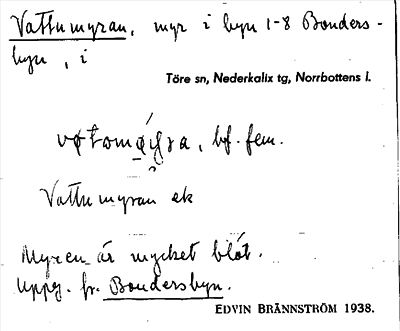 Vattumyran, myr i byn 1-8 Bonders-
byn, i
Töre sn, Nederkalix tg, Norrbottens l.
bf. fem.
Vattumyran ek
Myren är mycket blöt.
Uppg. fr. Bondersbyn.
EDVIN BRÄNNSTRÖM 1938.